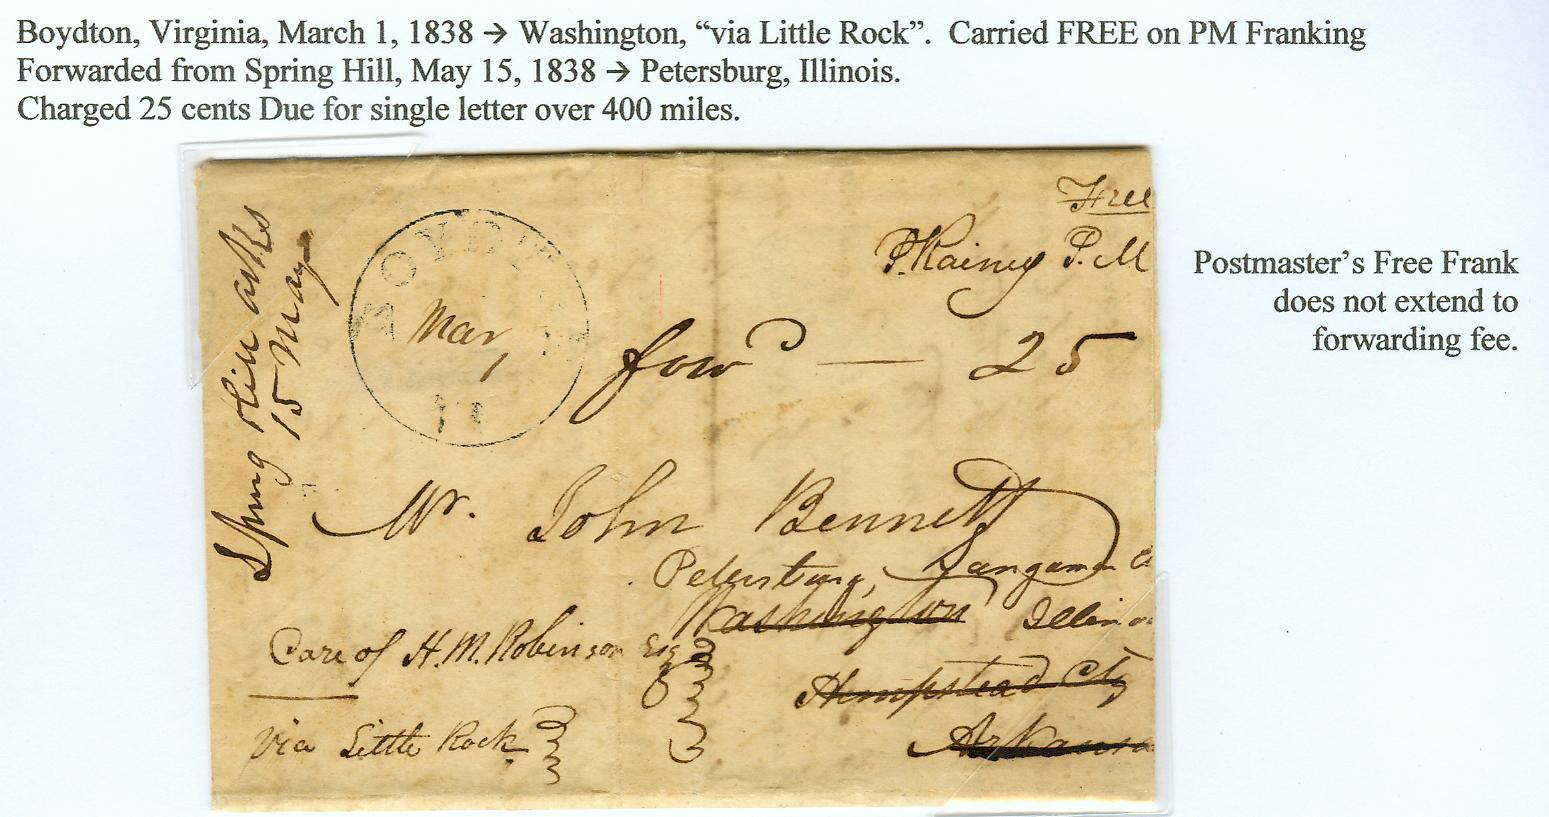 Boydton, Virginia, March 1, 1838 → Washington, “via Little Rock”. Carried FREE on PM Franking
Forwarded from Spring Hill, May 15, 1838 → Petersburg, Illinois.
Charged 25 cents Due for single letter over 400 miles.
Free
P. Rainey P. M
Postmaster’s Free Frank
does not extend to
forwarding fee.
Spring Hill arks
15 May
BOYDT
Mar
1
forwd — 25
Mr. John Bennett
Petersburg, Sangamon C
Washington Illino
Care of H. M. Robinson Esq
Hempstead Cty
via Little Rock
Arkansa